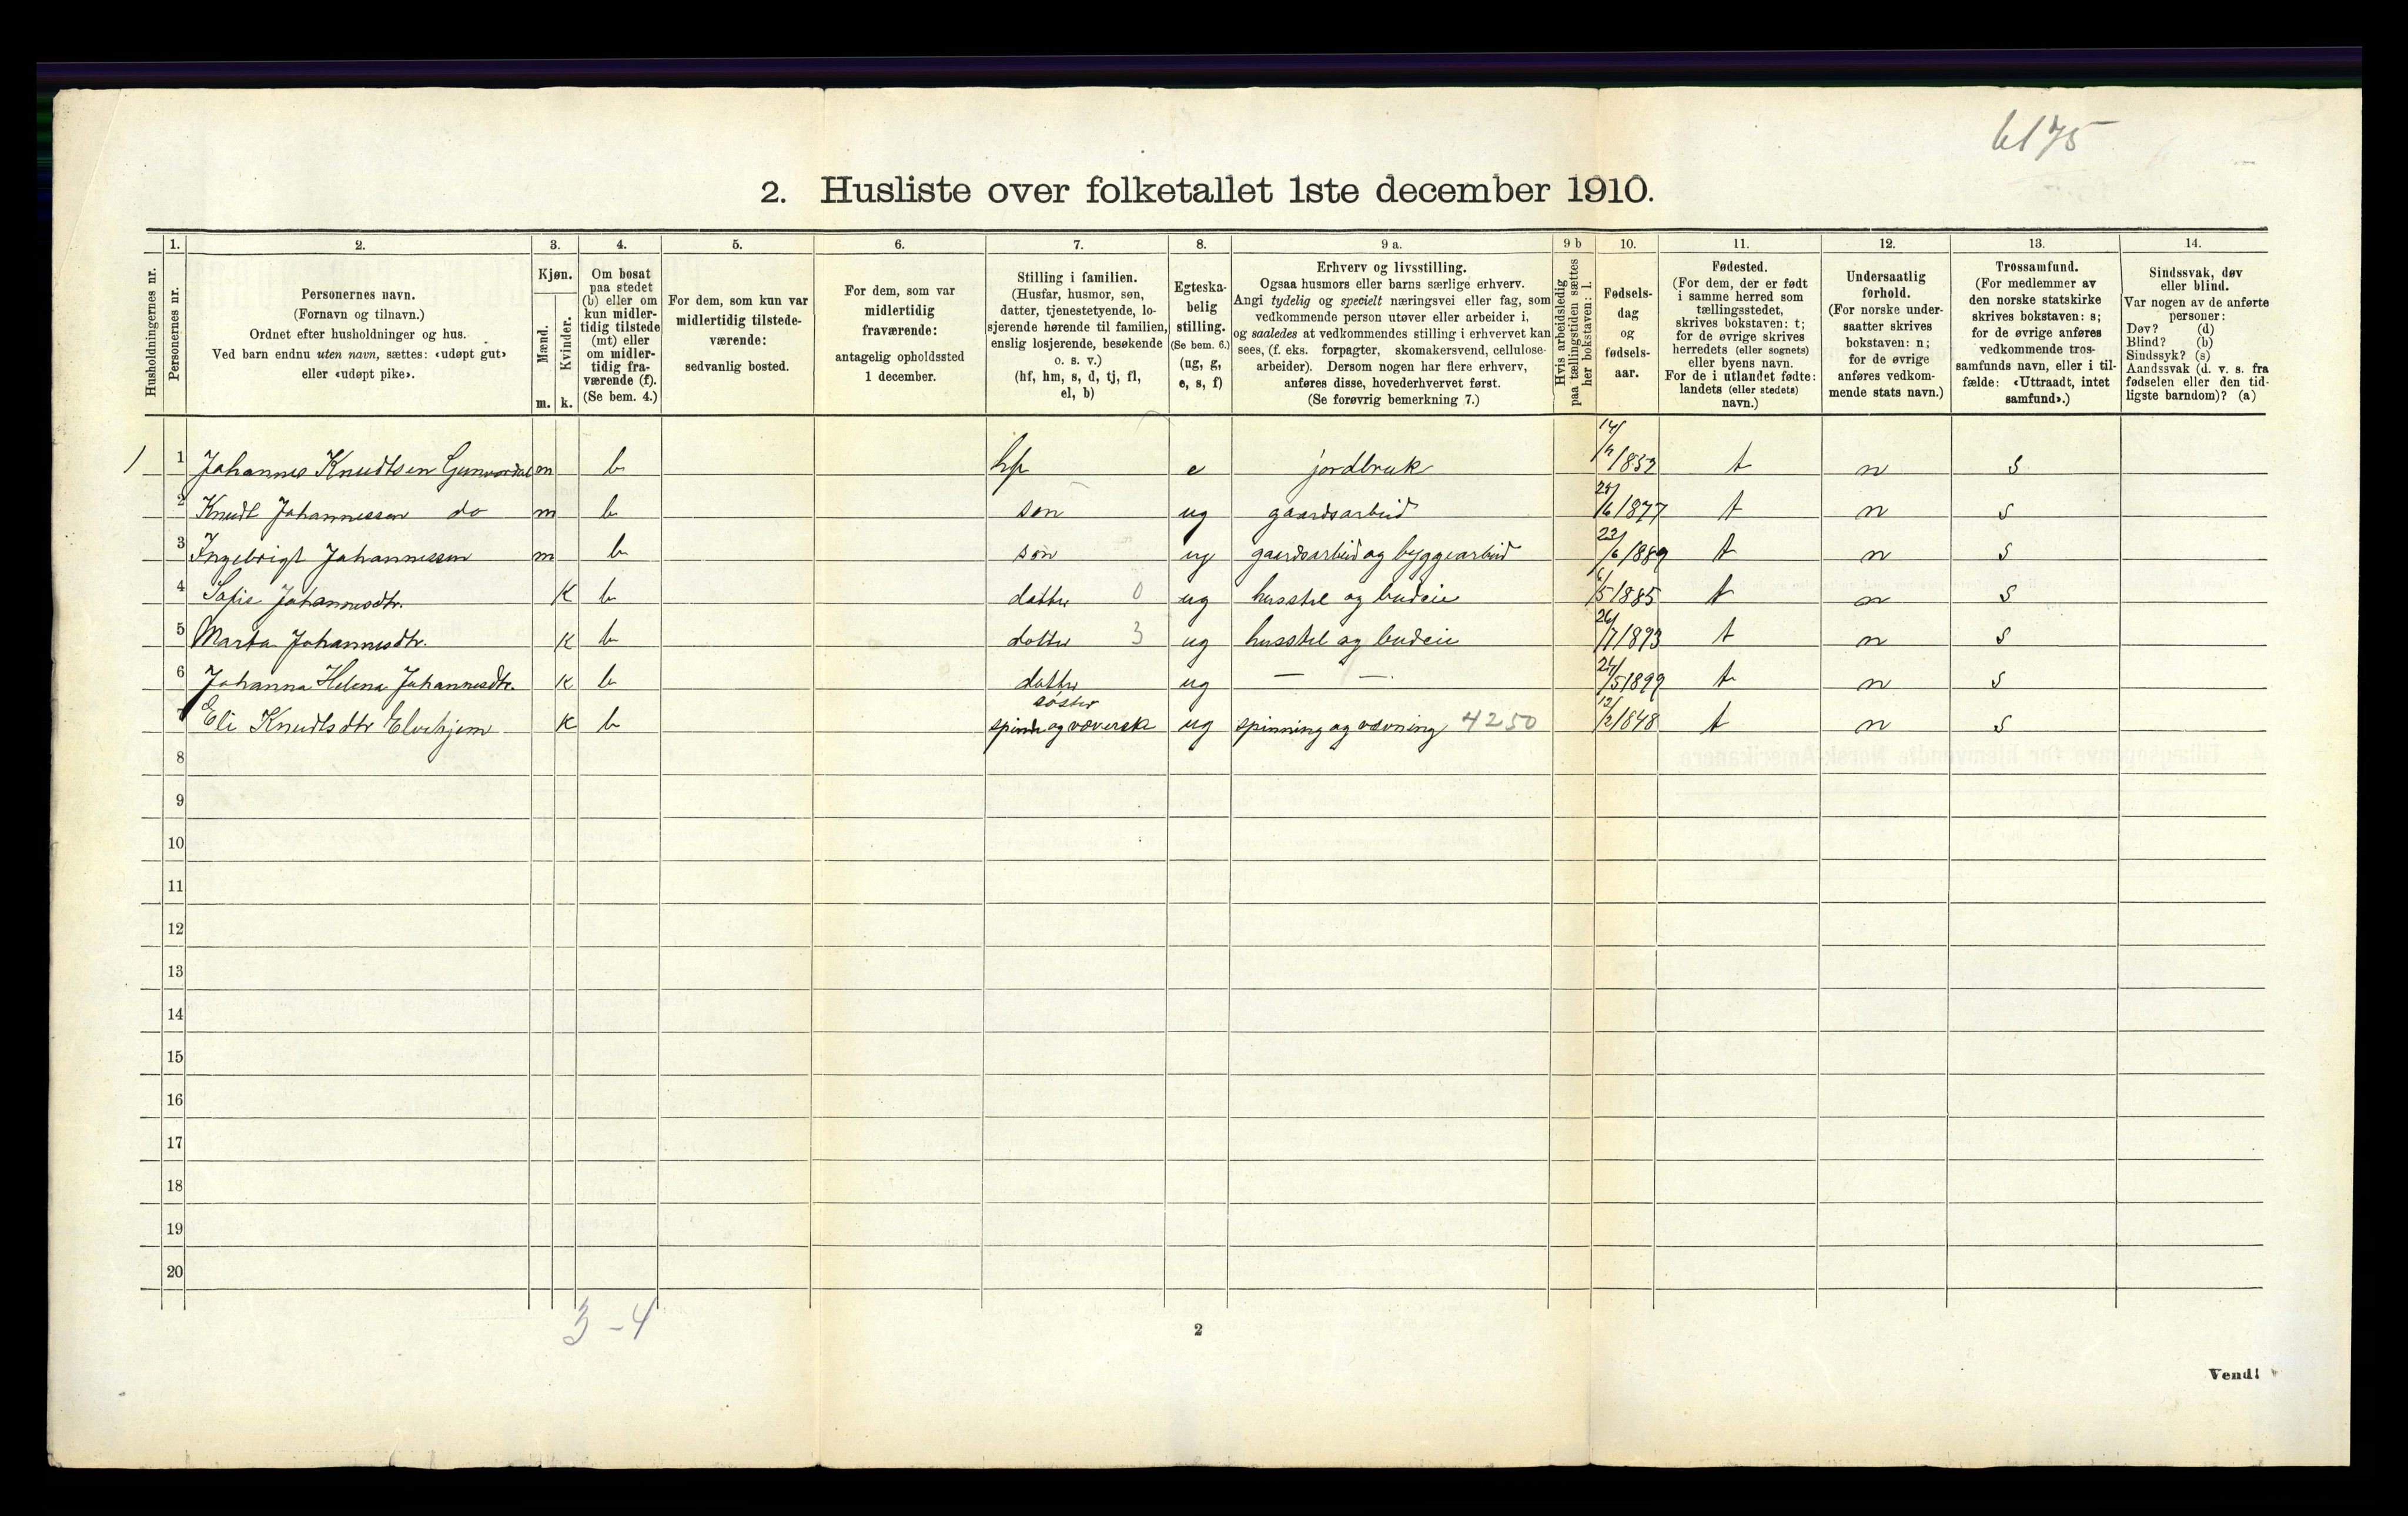 6175
2. Husliste over folketallet 1ste december 1910.
Husholdningernes nr.
1.
Personernes nr.
2.
Personernes navn.
(Fornavn og tilnavn.)
Ordnet efter husholdninger og hus.
Ved barn endnu uten navn, sættes: «udøpt gut»
eller «udøpt pike».
3.
Kjøn.
Mænd.
Kvinder.
m. k.
4.
Om bosat
paa stedet
(b) eller om
kun midler-
tidig tilstede
(mt) eller
om midler-
tidig fra-
værende (f).
(Se bem. 4.)
5.
For dem, som kun var
midlertidig tilstede-
værende:
sedvanlig bosted.
6.
For dem, som var
midlertidig
fraværende:
antagelig opholdssted
1 december.
7.
Stilling i familien.
(Husfar, husmor, søn,
datter, tjenestetyende, lo-
sjerende hørende til familien,
enslig losjerende, besøkende
o. s. v.)
(hf, hm, s, d, tj, fl,
el, b)
8.
Egteska-
belig
stilling.
(Se bem. 6.)
(ug, g,
e, s, f)
9 a.
Erhverv og livsstilling.
Ogsaa husmors eller barns særlige erhverv.
Angi tydelig og specielt næringsvei eller fag, som
vedkommende person utøver eller arbeider i,
og saaledes at vedkommendes stilling i erhvervet kan
sees, (f. eks. forpagter, skomakersvend, cellulose-
arbeider). Dersom nogen har flere erhverv,
anføres disse, hovederhvervet først.
(Se forøvrig bemerkning 7.)
9 b
Hvis arbeidsledig
paa tællingstiden sættes
her bokstaven: l.
10.
Fødsels-
dag
og
fødsels-
aar.
11.
Fødested.
(For dem, der er født
i samme herred som
tællingsstedet,
skrives bokstaven: t;
for de øvrige skrives
herredets (eller sognets)
eller byens navn.
For de i utlandet fødte:
landets (eller stedets)
navn.)
12.
Undersaatlig
forhold.
(For norske under-
saatter skrives
bokstaven: n;
for de øvrige
anføres vedkom-
mende stats navn.)
13.
Trossamfund.
(For medlemmer av
den norske statskirke
skrives bokstaven: s;
for de øvrige anføres
vedkommende tros-
samfunds navn, eller i til-
fælde: «Uttraadt, intet
samfund».)
14.
Sindssvak, døv
eller blind.
Var nogen av de anførte
personer:
Døv? (d)
Blind? (b)
Sindssyk? (s)
Aandssvak (d. v. s. fra
fødselen eller den tid-
ligste barndom)? (a)
1 1 Johannes Knudtsen m b hf e jordbruk t n s
2 Knudt Johannessen do m b søn ug gaardsarbeid 1877 t n s
3 Ingebrigt Johannessen m b søn ug gaardsarbeid og byggearbeid 23/6 1889 t n s
4 Sofie Johannesdtr. k b datter 0 ug husstel og budeie 5 1885 t n s
5 Marta Johannesdtr. k b datter 3 ug husstel og budeie 26/7 1893 t n s
6 Johanna Helena Johannesdtr. k b datter ug — — 24/5 1899 t n s
søster
7 Eli Knudtsdtr Elvehjem k b og væverske ug spinning og vævning 4250 12/2 1848 t n s
8
9
10
11
12
13
14
15
16
17
18
19
20
3 – 4
2
Vend!